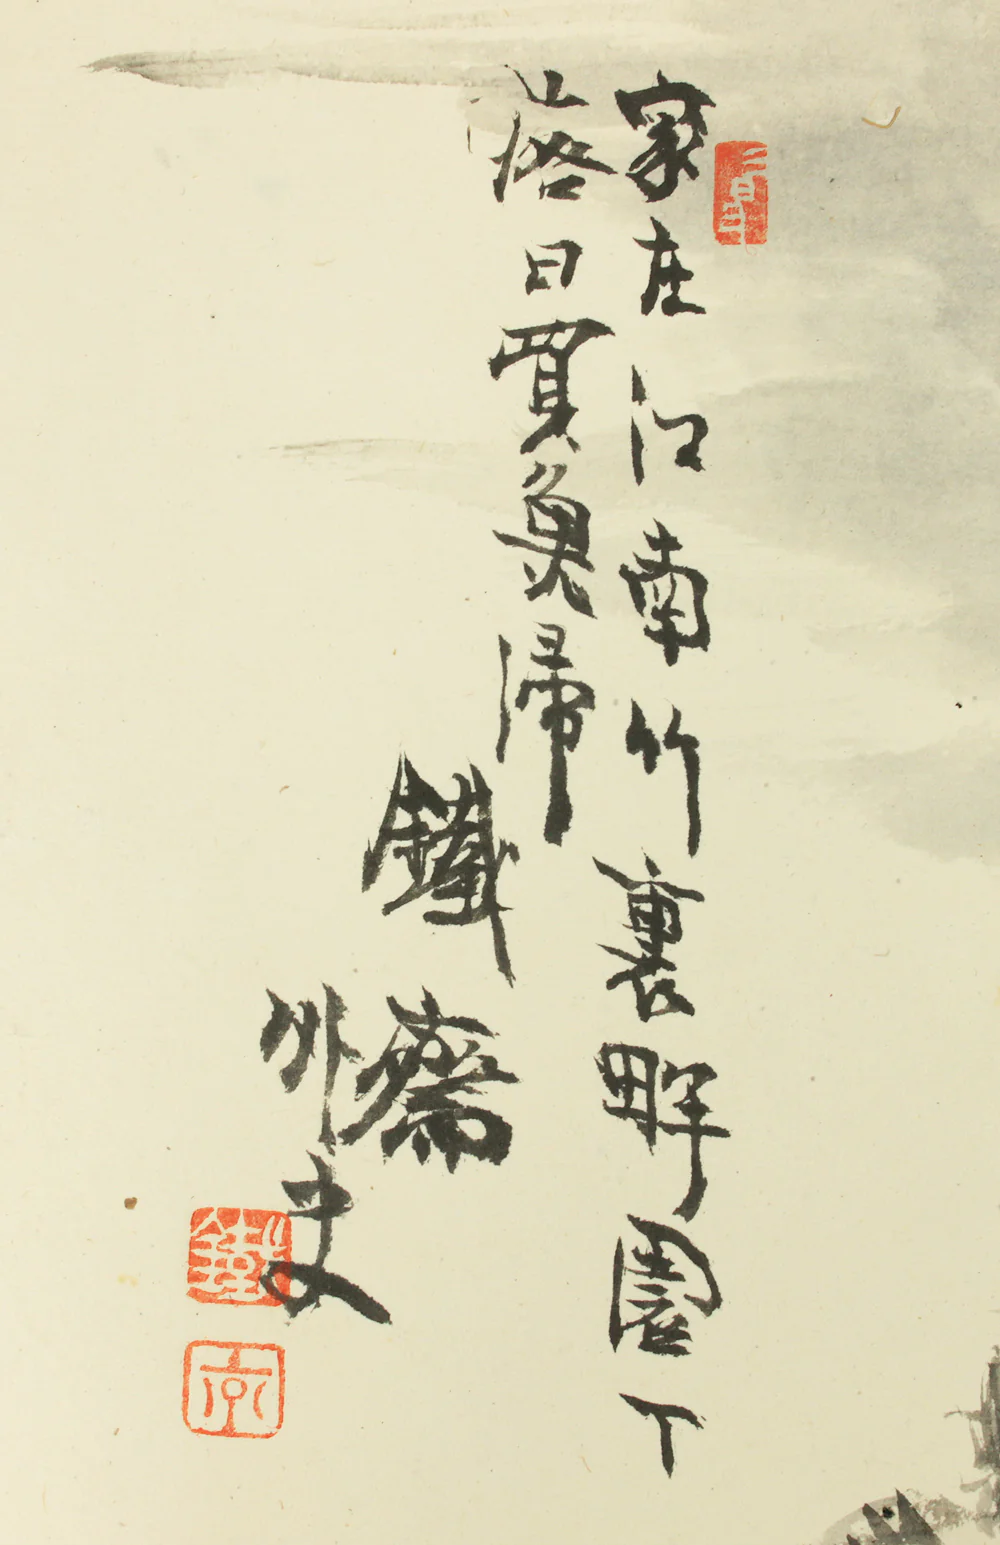 家在江南竹裏畔園丁
落日買魚歸
鐵齋
外史